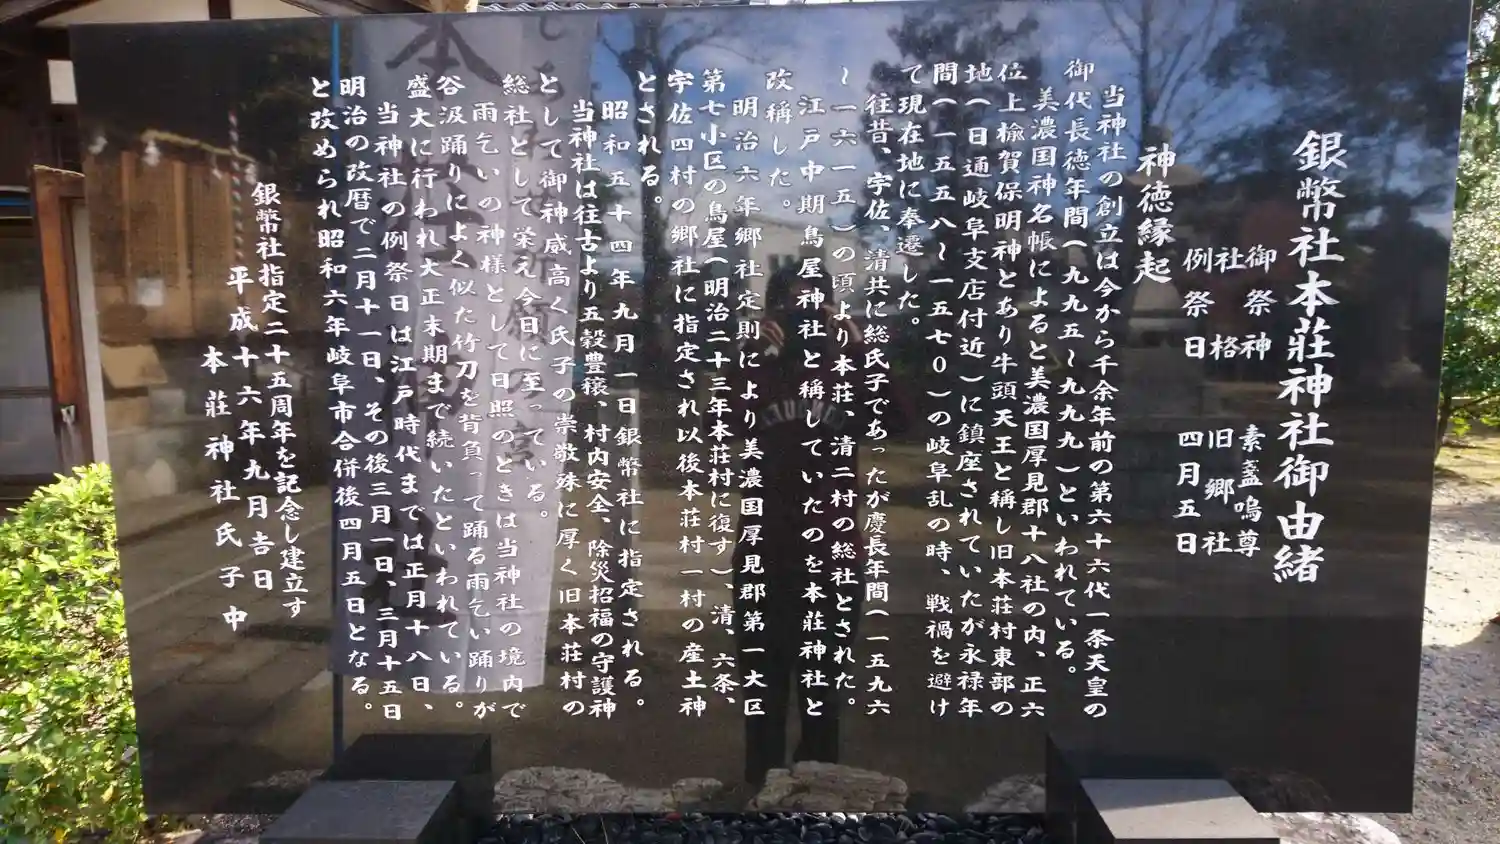 銀幣社本荘神社御由緒
御祭神 素盞嗚尊
社格 旧郷社
例祭日 四月五日
神徳縁起
当神社の創立は今から千余年前の第六十六代一条天皇の
御代長徳年間(九九五~九九九)といわれている。
美濃国神名帳によると美濃国厚見郡十八社の内、正六
位上楡賀保明神とあり牛頭天王と稱し旧本荘村東部の
地(日通岐阜支店付近)に鎮座されていたが永禄年
間(一五五八~一五七〇)の岐阜乱の時、戦禍を避け
て現在地に奉遷した。
往昔、宇佐、清共に総氏子であったが慶長年間(一五九六
~一六一五)の頃より本荘、清二村の総社とされた。
江戸中期鳥屋神社と稱していたのを本荘神社と
改稱した。
明治六年郷社定則により美濃国厚見郡第一大区
第七小区の鳥屋(明治二十三年本荘村に復す)、清、六条、
宇佐四村の郷社に指定され以後本荘村一村の産土神
とされる。
昭和五十四年九月一日銀幣社に指定される。
当神社は往古より五穀豊穣、村内安全、除災招福の守護神
として御神威高く氏子の崇敬殊に厚く旧本荘村の
総社として栄え今日に至っている。
雨乞いの神様として日照のときは当神社の境内で
谷汲踊りによく似た竹刀を背負って踊る雨乞い踊りが
盛大に行われ大正末期まで続いたといわれている。
当神社の例祭日は江戸時代までは正月十八日、
明治の改暦で二月十一日、その後三月一日、三月十五日
と改められ昭和六年岐阜市合併後四月五日となる。
銀幣社指定二十五周年を記念し建立す
平成十六年九月吉日
本荘神社氏子中